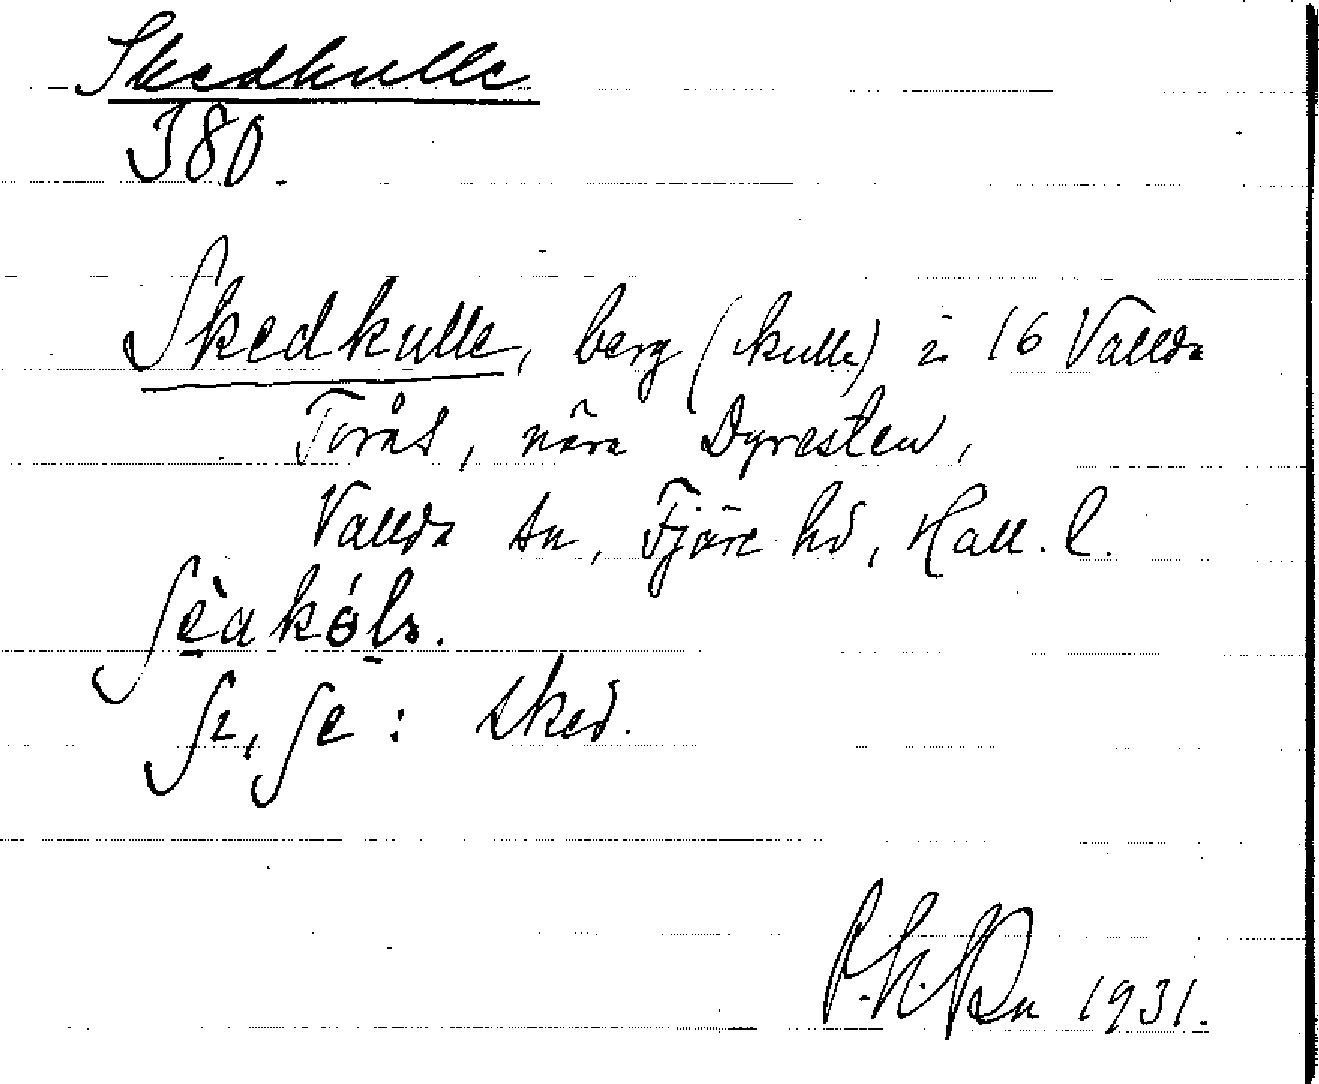 Skedkulle
380.
Skedkulle, berg (kulle) i 16 Vallda
Torås, nära Dyresten,
Vallda sn, Fjäre hd, Hall. l.
: sked.
1931.